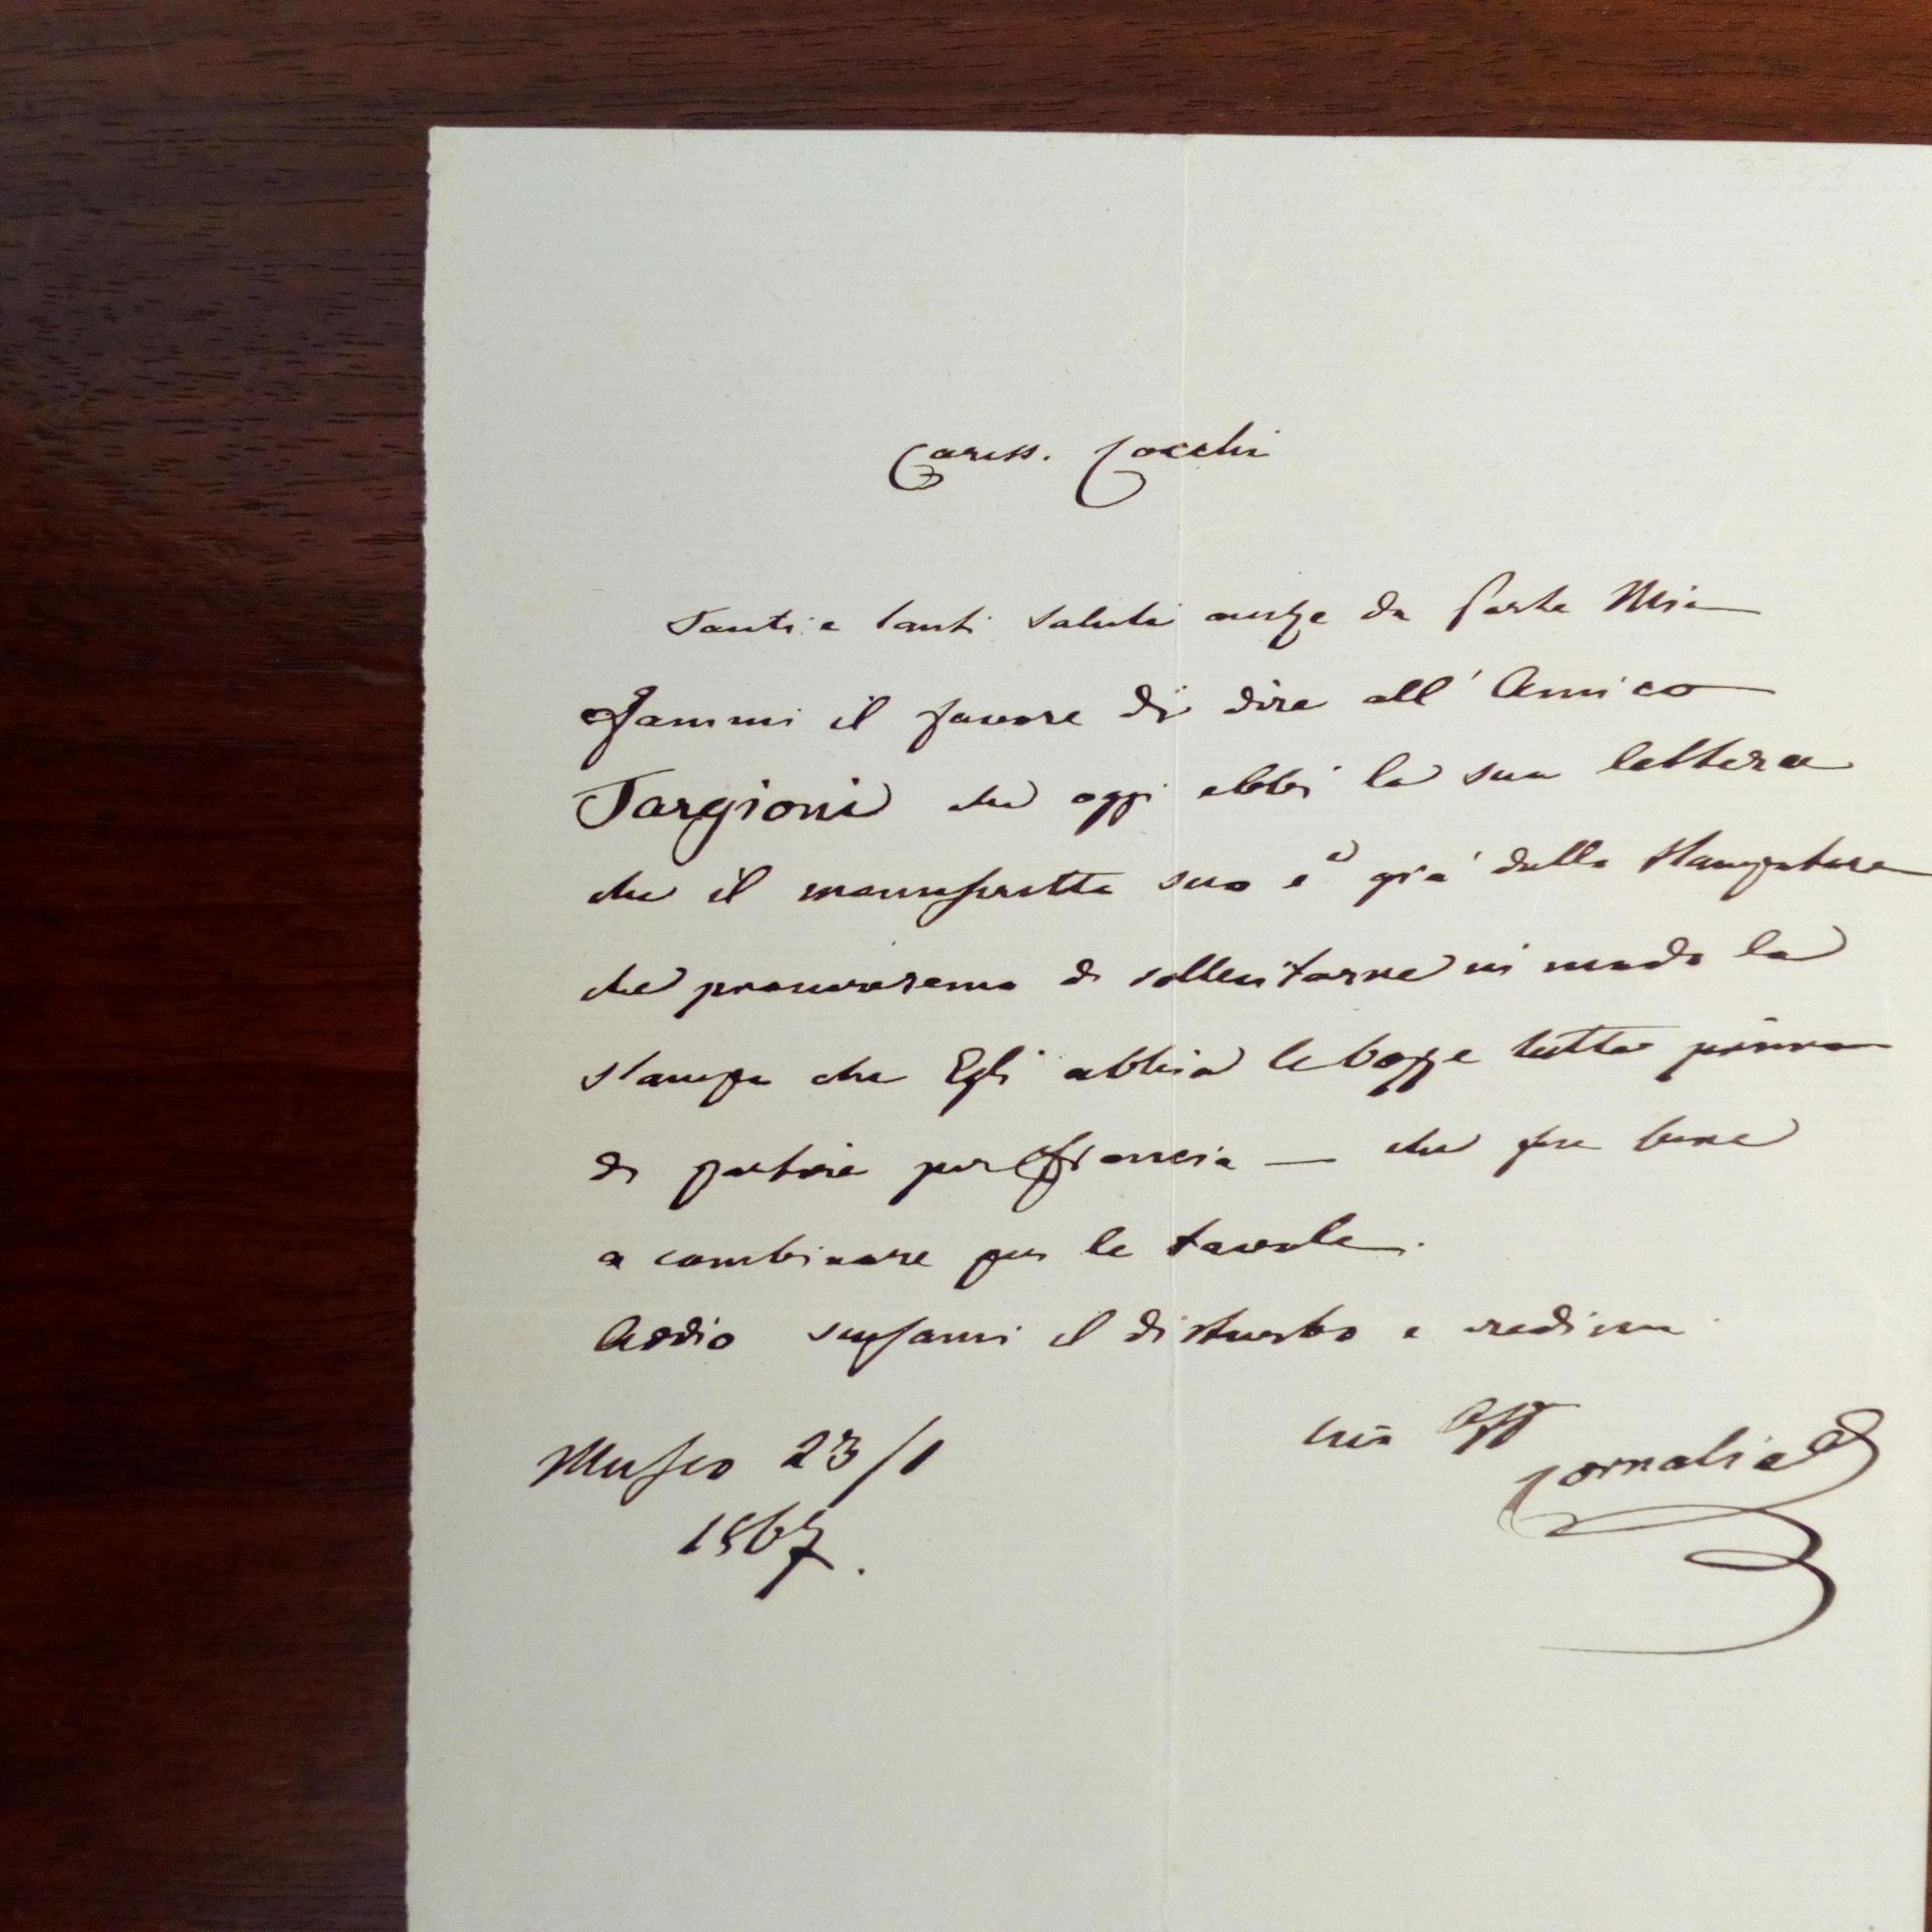 Cariss. Cocchi
Tanti e tanti saluti anche da parte Mia
Fammi il favore di dire all' Amico
Targioni che oggi ebbi la sua lettera
che il manuscritto suo è già dallo stampatore
che procureremo di sollecitarne in modo la
stampa che Egli abbia le bozze tutte prima
di partire per Francia — che fu bene
a combinare per le tavole.
Addio scusami il disturbo e credimi
tuo Aff
Cornalia
Museo 23/1
1867.